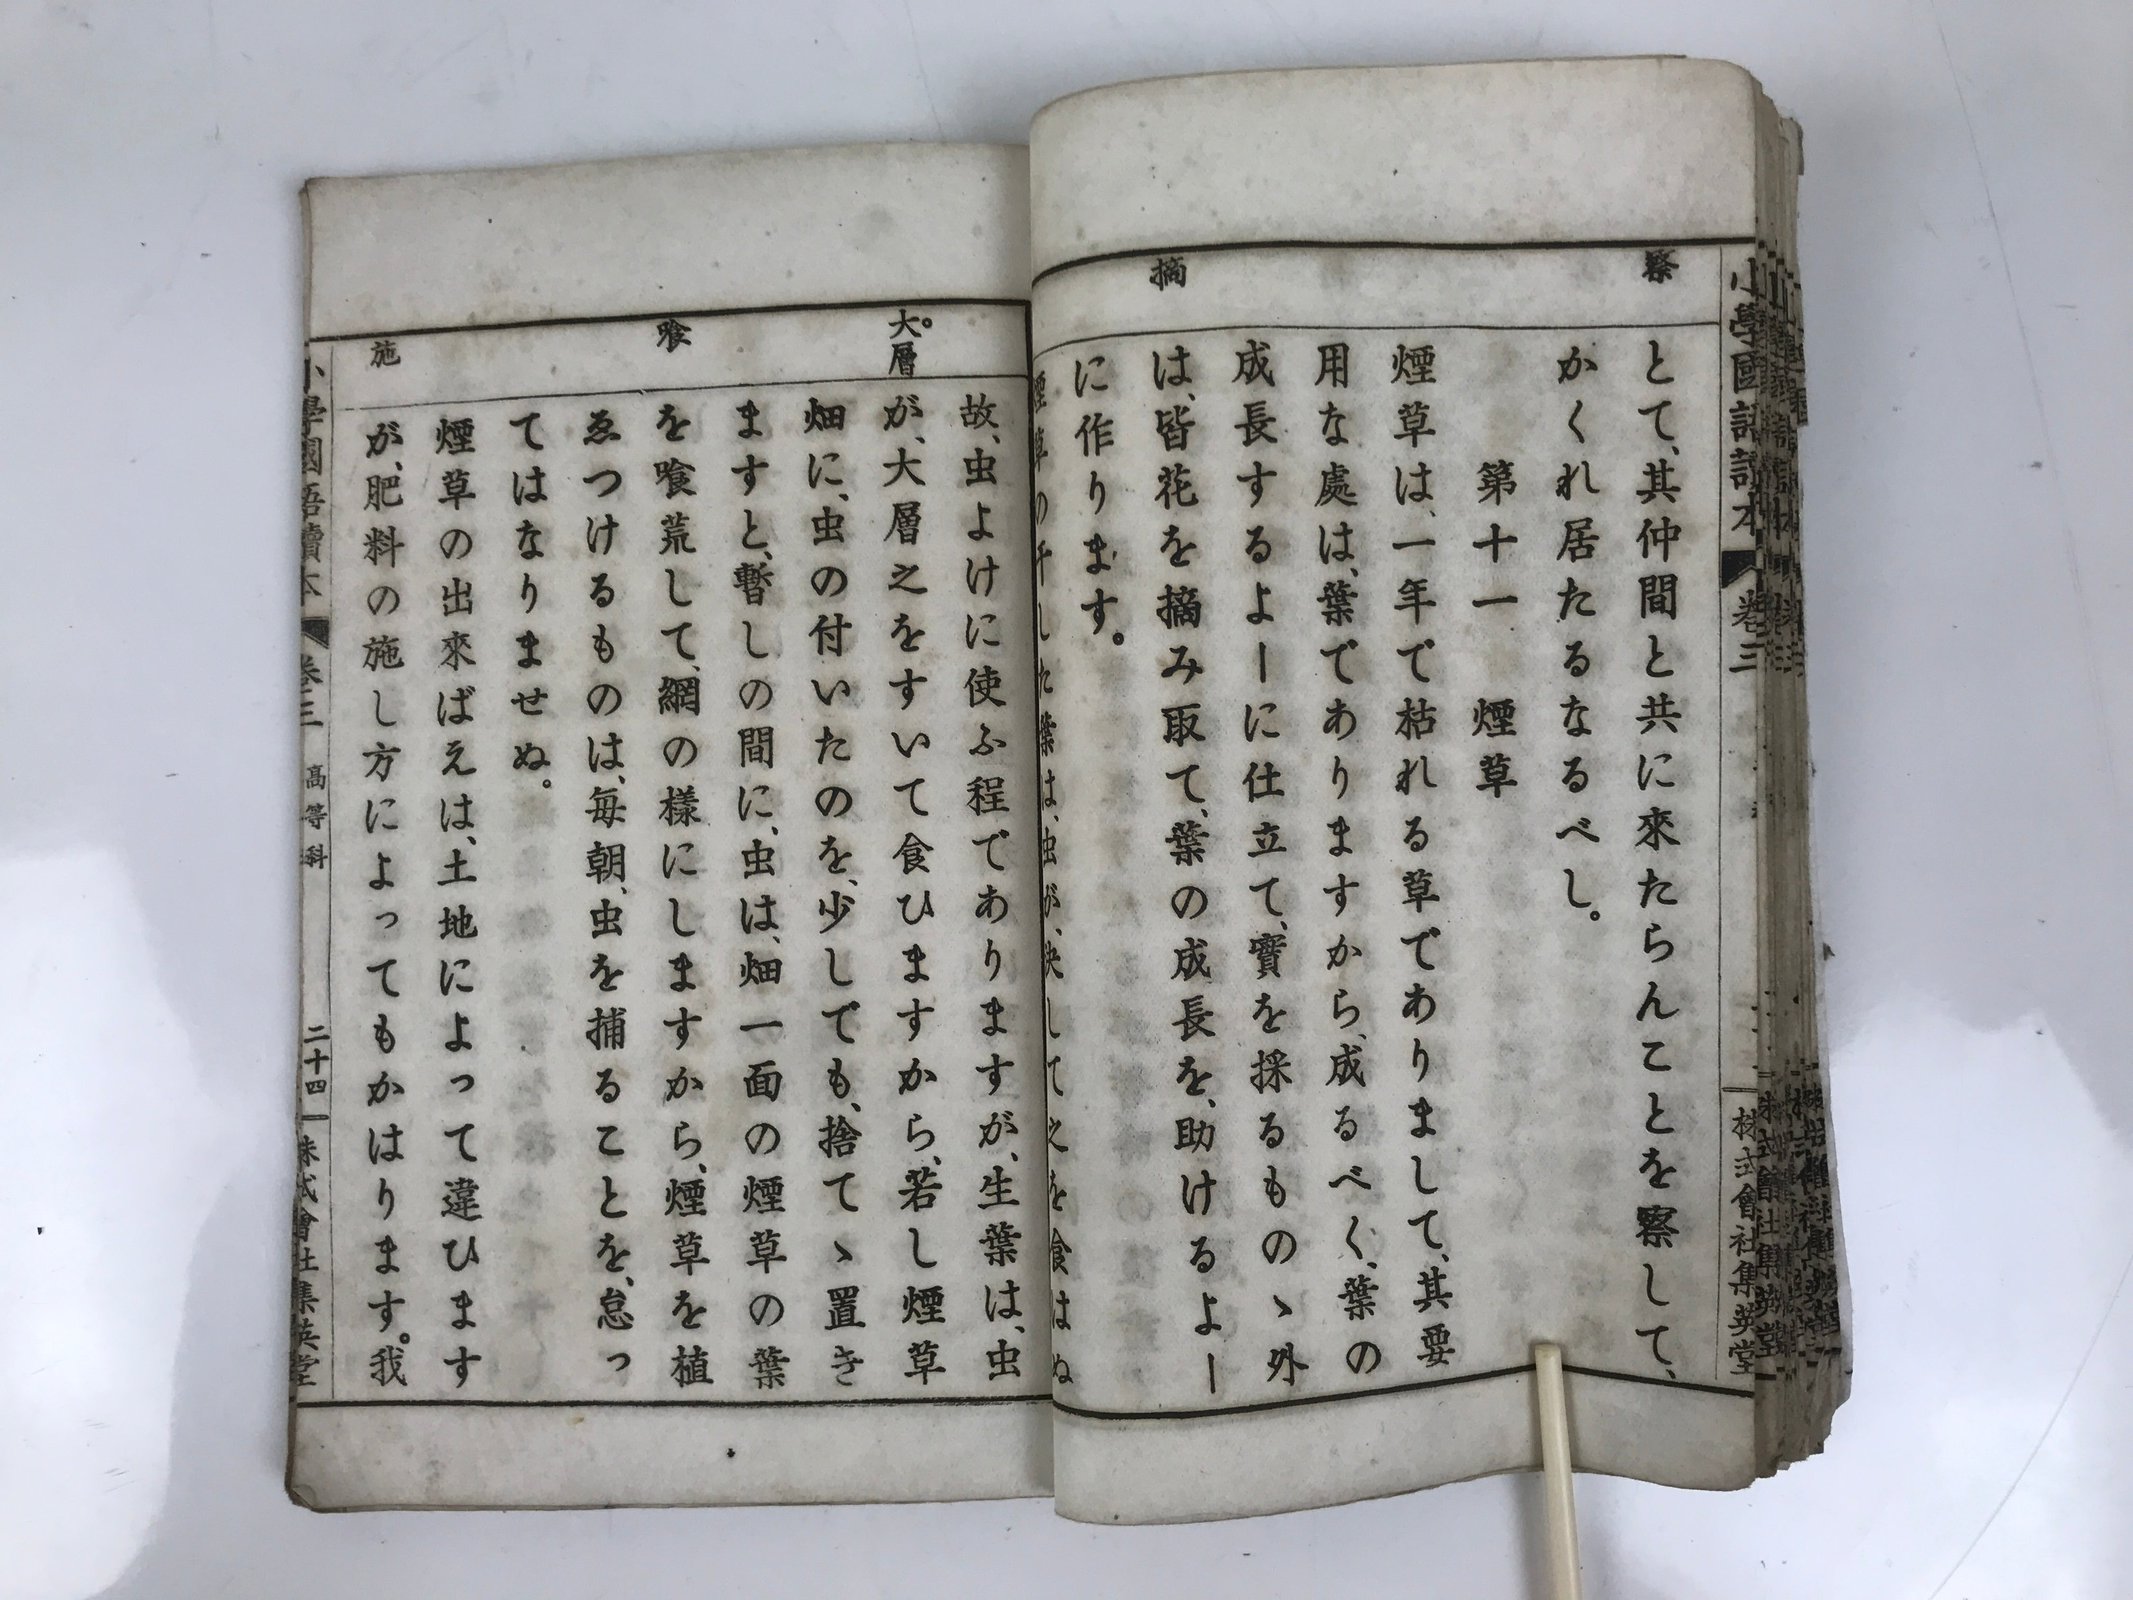 小學國語讀本 卷三
株式會社集英堂
察
摘
とて、其仲間と共に來たらんことを察して、
かくれ居たるなるべし。
第十一 煙草
煙草は、一年で枯れる草でありまして、其要
用な處は、葉でありますから、成るべく、葉の
成長するよーに仕立て、實を採るものゝ外
は、皆花を摘み取て、葉の成長を、助けるよー
に作ります。
煙草の干した葉は、虫が、決して之を食はぬ
大層
喰
施
故、虫よけに使ふ程でありますが、生葉は、虫
が、大層之をすいて食ひますから、若し煙草
畑に、虫の付いたのを、少しでも、捨てゝ置き
ますと、暫しの間に、虫は、畑一面の煙草の葉
を喰荒して、網の樣にしますから、煙草を植
ゑつけるものは、毎朝、虫を捕ることを、怠っ
てはなりませぬ。
煙草の出來ばえは、土地によって違ひます
が、肥料の施し方によってもかはります。我
小學國語讀本 卷三 高等科 二十四 株式會社集英堂